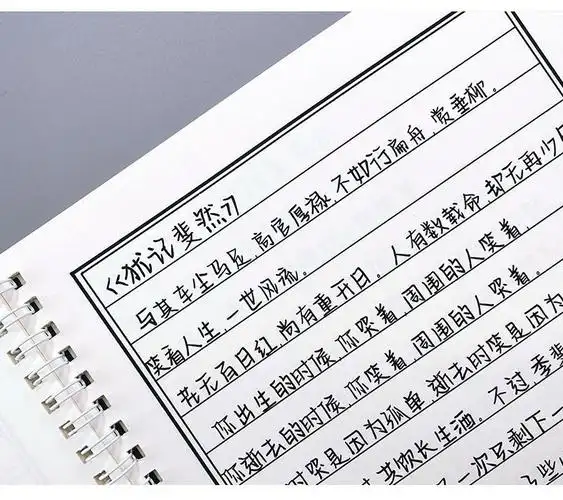 《犹记斐然》
与其车尘马足,高官厚禄,不如行扁舟,赏垂柳。
笑看人生,一世风流。
花无百日红,尚有重开日。人有数载命,却无再少
你出生的时候,你哭着,周围的人笑着,
你逝去的时候,你笑着,周围的人哭着。
时哭是因为孤单,逝去时笑是因为
其饮长生酒。不过,季斐
一次只剩下一
些